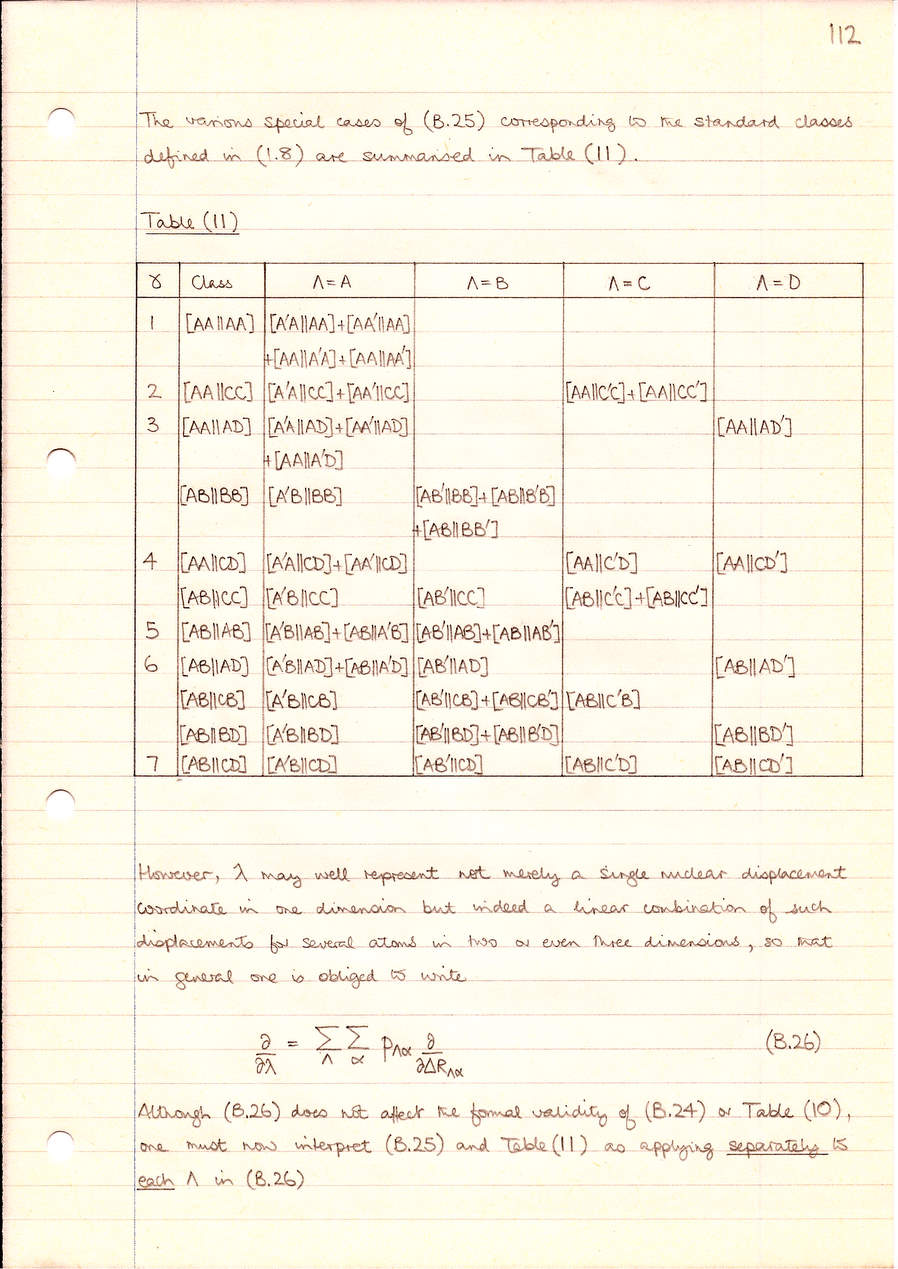 112
The various special cases of (B.25) corresponding to the standard classes
defined in (1.8) are summarised in Table (11).
Table (11)
γ Class Λ=A Λ=B Λ=C Λ=D
1 [AA||AA] [A′A||AA]+[AA′||AA]
+[AA||A′A]+[AA||AA′]
2 [AA||CC] [A′A||CC]+[AA′||CC] [AA||C′C]+[AA||CC′]
3 [AA||AD] [A′A||AD]+[AA′||AD] [AA||AD′]
+[AA||A′D]
[AB||BB] [A′B||BB] [AB′||BB]+[AB||B′B]
+[AB||BB′]
4 [AA||CD] [A′A||CD]+[AA′||CD] [AA||C′D] [AA||CD′]
[AB||CC] [A′B||CC] [AB′||CC] [AB||C′C]+[AB||CC′]
5 [AB||AB] [A′B||AB]+[AB||A′B] [AB′||AB]+[AB||AB′]
6 [AB||AD] [A′B||AD]+[AB||A′D] [AB′||AD] [AB||AD′]
[AB||CB] [A′B||CB] [AB′||CB]+[AB||CB′] [AB||C′B]
[AB||BD] [A′B||BD] [AB′||BD]+[AB||B′D] [AB||BD′]
7 [AB||CD] [A′B||CD] [AB′||CD] [AB||C′D] [AB||CD′]
However, λ may well represent not merely a single nuclear displacement
coordinate in one dimension but indeed a linear combination of such
displacements for several atoms in two or even three dimensions, so that
in general one is obliged to write
∂/∂λ = Σ_Λ Σ_α p_Λα ∂/∂ΔR_Λα (B.26)
Although (B.26) does not affect the formal validity of (B.24) or Table (10),
one must now interpret (B.25) and Table (11) as applying separately to
each Λ in (B.26)